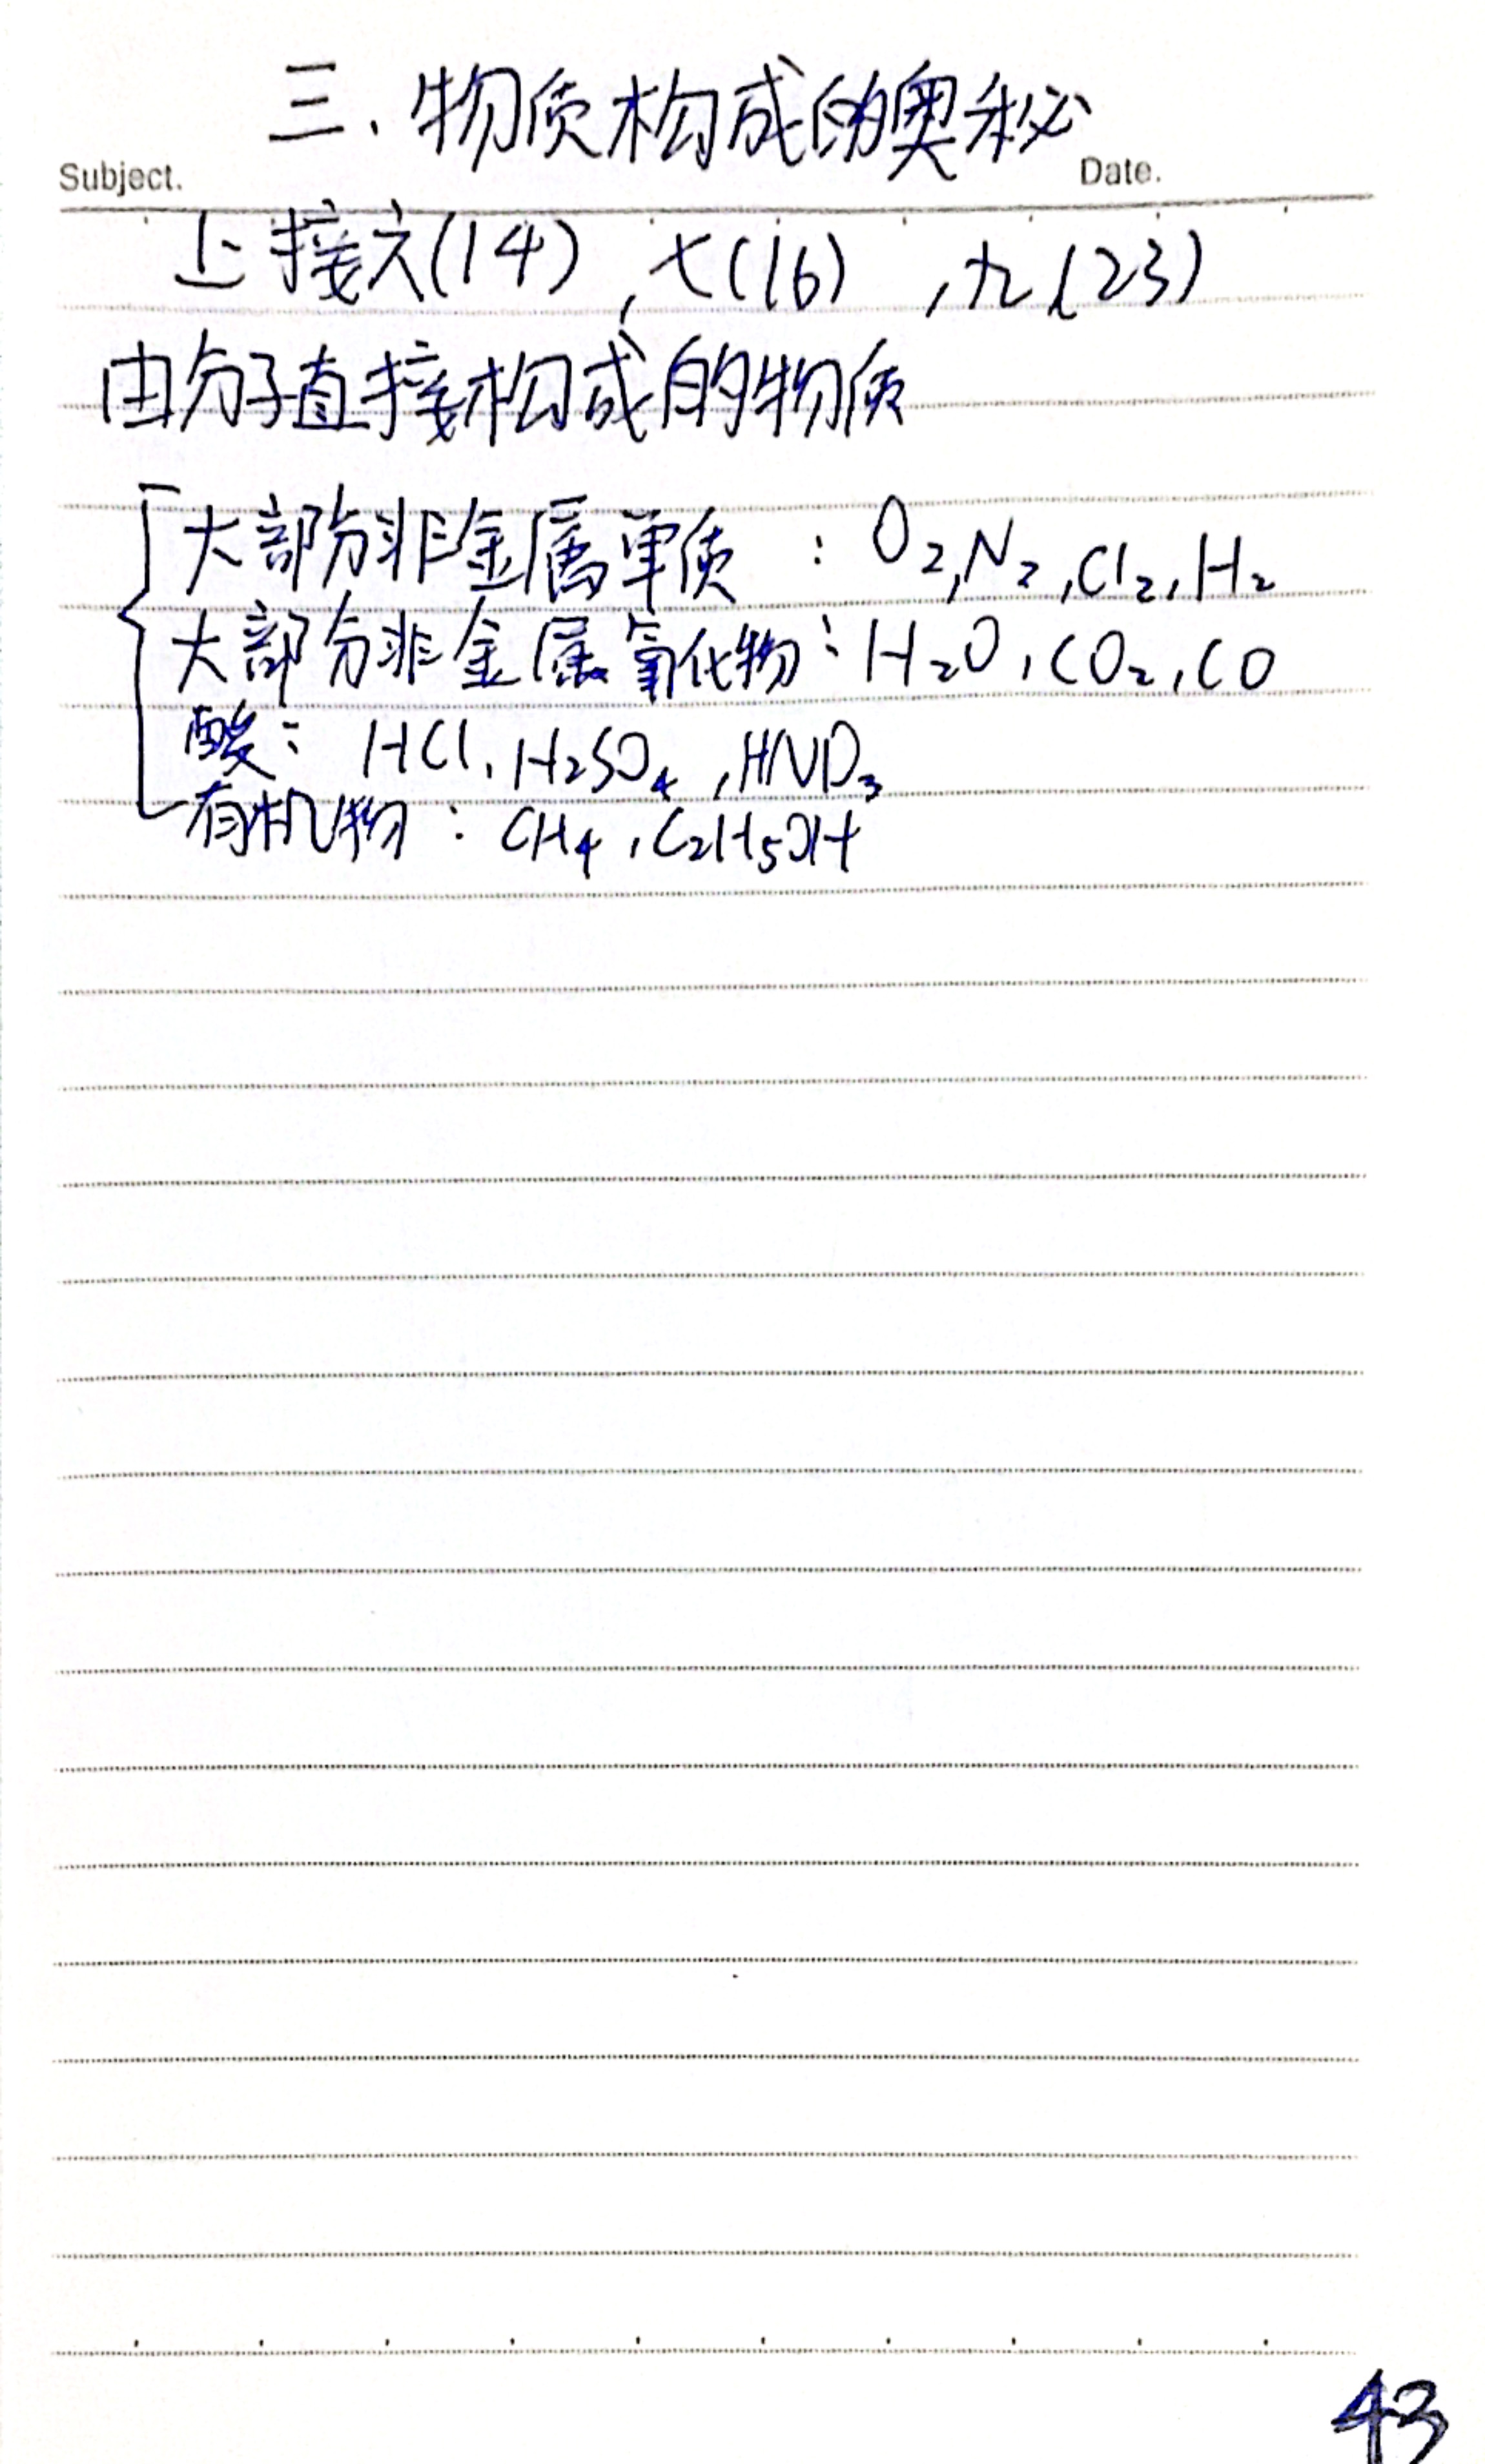 三、物质构成的奥秘
Subject.
Date.
上接六(14),七(16),九(23)
由分子直接构成的物质
大部分非金属单质:O₂,N₂,Cl₂,H₂
大部分非金属氧化物:H₂O,CO₂,CO
酸:HCl,H₂SO₄,HNO₃
有机物:CH₄,C₂H₅OH
43